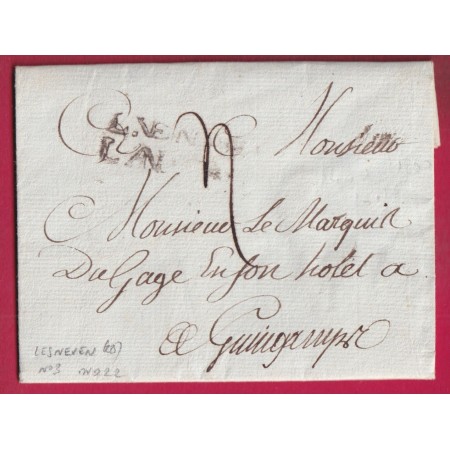 Monsieur
Monsieur Le Marquis
Du Gage En son hotel a
a Guingamp
LESNEVEN (28)
N°3 N°22